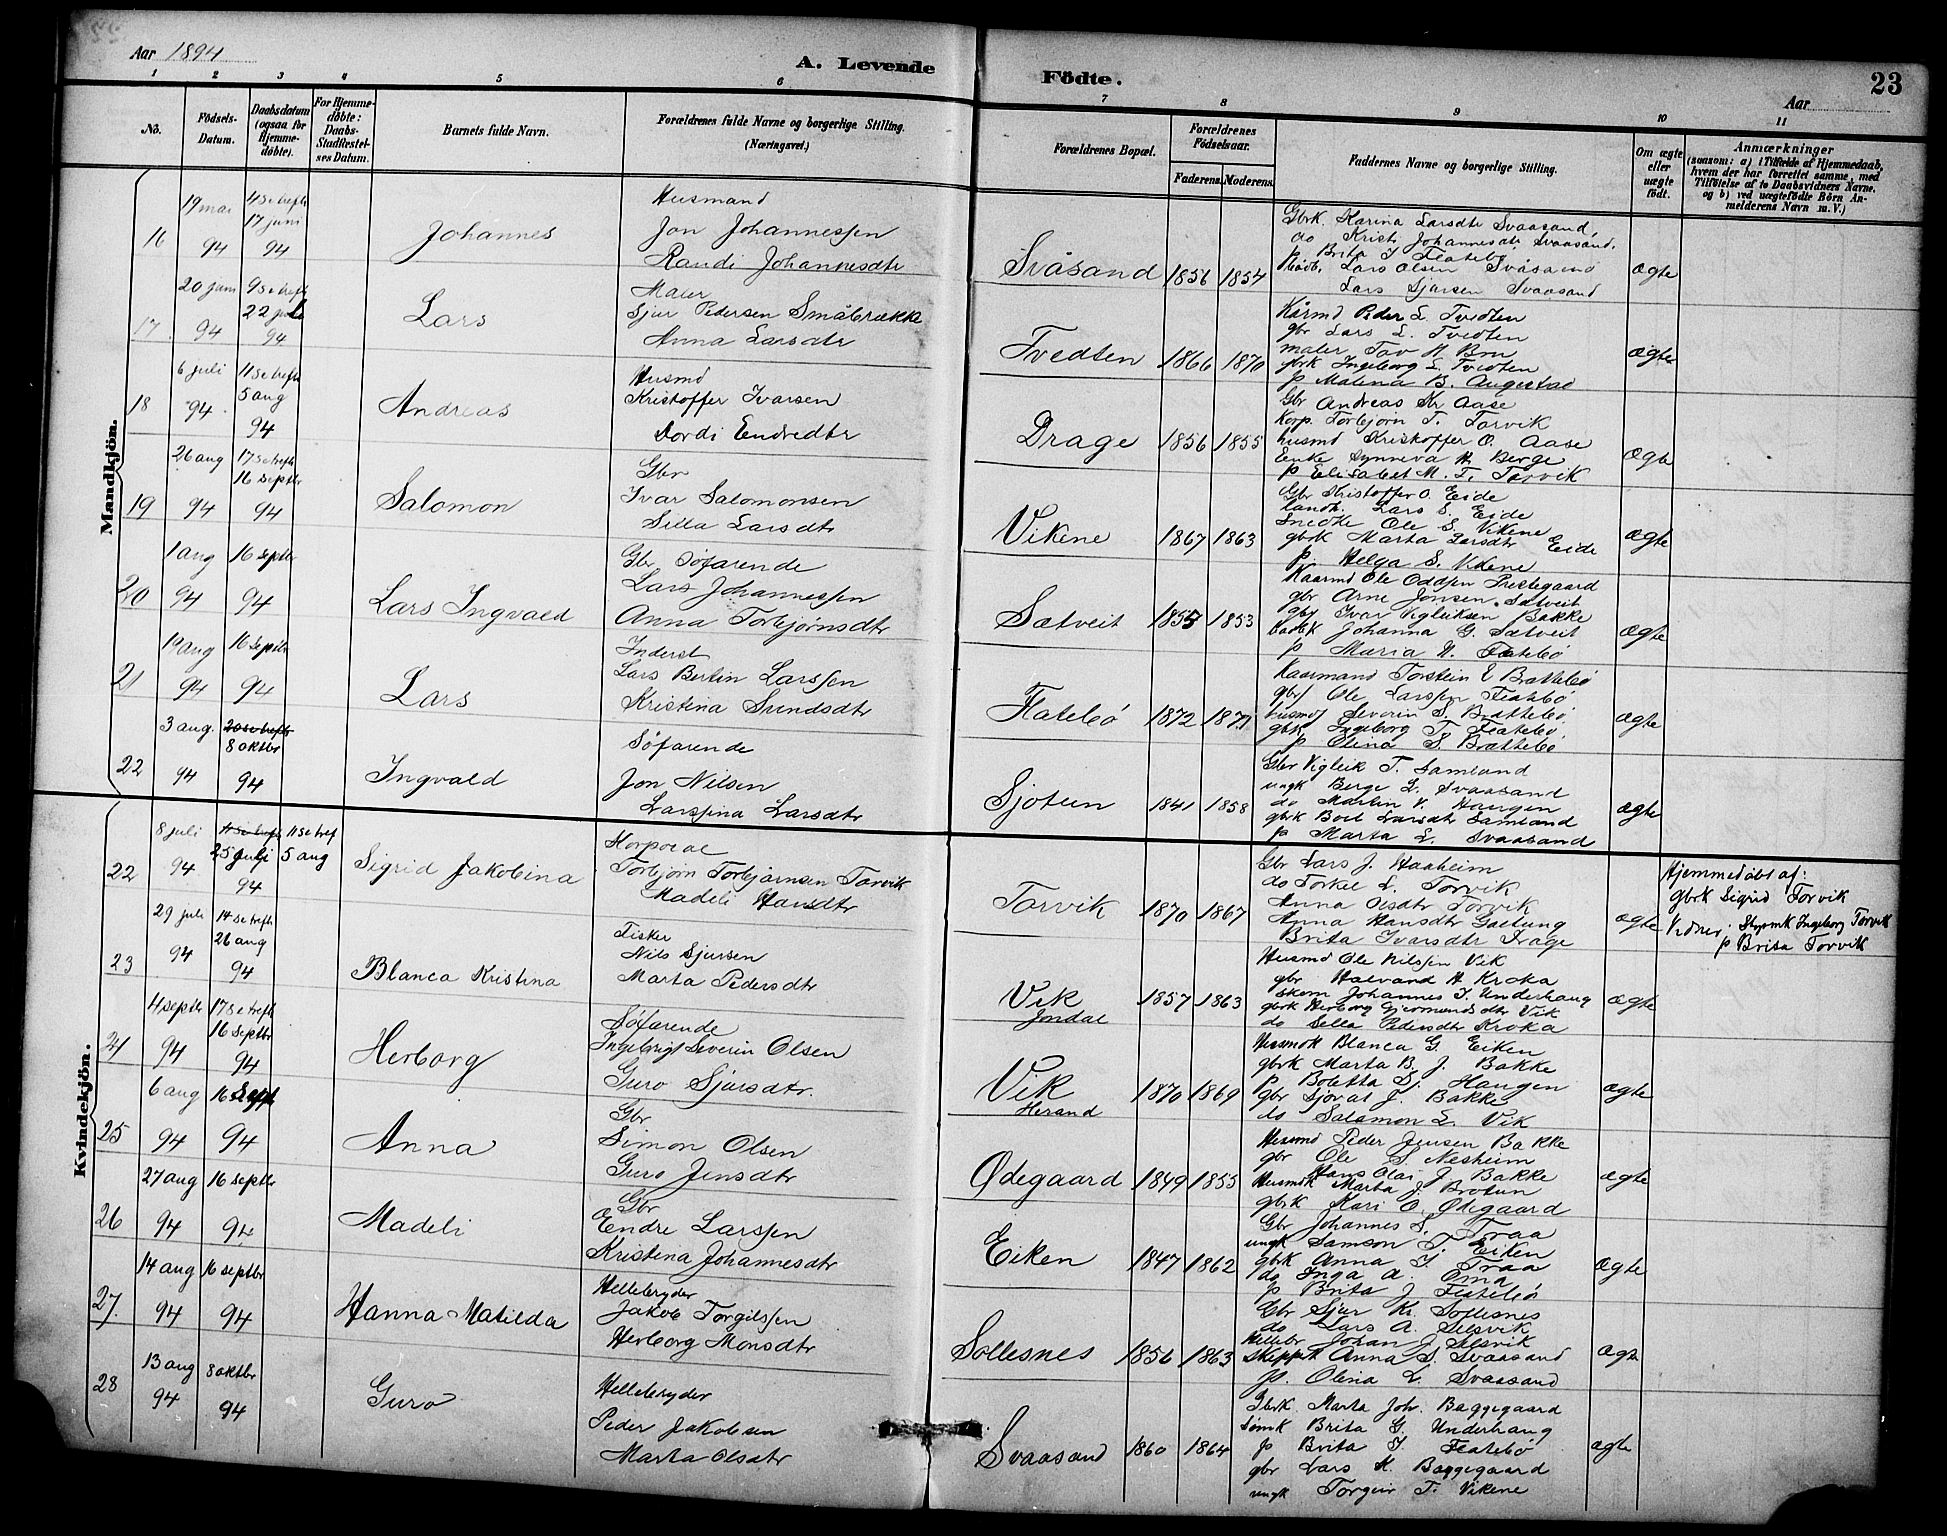 Aar 1894
A. Levende
Födte.
23
Aar
1 2 3 4 5 6
7 8 9 10 11
No.
Födsels-Datum.
Daabsdatum (ogsaa for Hjemmedöbte).
For Hjemmedöbte: Daabs-Stadfæstelses Datum.
Barnets fulde Navn.
Forældrenes fulde Navne og borgerlige Stilling. (Næringsvei.)
Forældrenes Bopæl.
Forældrenes Födselsaar.
Faderens. Moderens.
Faddernes Navne og borgerlige Stilling.
Om ægte eller uægte födt.
Anmærkninger
(saasom: a) i Tilfælde af Hjemmedaab,
hvem der har forrettet samme, med
Tilföielse af to Daabsvidners Navne.
og b) ved uægtefödte Börn Anmelderens Navn m. V.)
Mandkjön.
16
19 mai 94
4 Se trefr 17 juni 94
Johannes
Husmand
Jon Johannessen
Randi Johannesdtr
Svåsand
1856 1854
Gbrk Karina Larsdtr Svaasand,
do Kristi Johannesdtr Svaasand,
p Brita J Flatebø
Lars Olsen Svåsand
Lars Sjursen Svaasand
ægte
17
20 juni 94
9 Se trefr 22 juli 94
Lars
Maler
Sjur Pedersen Småbrække
Anna Larsdtr
Tvedten
1866 1870
Kårmd Peder L. Tvedten
gbr Lars L. Tvedten
maler Tov H Bru
gbrk Ingeborg L. Tvedten
p Malena B. Augestad
ægte
18
6 juli 94
11 Se trefr 5 aug 94
Andreas
Husmd
Kristoffer Ivarsen
Dordi Endredtr
Drage
1856 1855
Gbr Andreas Kr Aase
Korp. Torbjørn T. Torvik
husmd Kristoffer O. Aase
Enke Synneva H. Berge
p Elisabet M. T. Torvik
ægte
19
26 aug 94
17 Se trefr 16 septbr 94
Salomon
Gbr
Ivar Salomonsen
Sella Larsdtr
Vikene
1867 1863
Gbr Kristoffer O. Eide
landh. Lars S. Eide
Snedke Ole S. Vikene
gbrk Marta Larsdtr Eide
p. Helga S. Vikene
ægte
20
1 aug 94
16 septbr 94
Lars Ingvald
Gbr Søfarende
Lars Johannessen
Anna Torbjørnsdtr
Sætveit
1853
Kaarmd Ole Oddsen Prestegaard
gbr Arne Jonsen Sætveit
gbr Ivar Vigleiksen Bakke
Johanna G. Sætveit
p Maria N. Flatebø
ægte
21
19 aug 94
16 septbr 94
Lars
Inderst
Lars Bertin Larssen
Kristina Svendsdtr
Flatebø
1872 1871
Kaarmand Torstein E Brattebø
gbr Ole Larssen Flatebø
husmd Severin S. Brattebø,
gbrk Ingeborg T. Flatebø,
p Olina S. Brattebø
ægte
22
3 aug. 94
20 Se trefr 8 oktbr 94
Ingvald
Søfarende
Jon Nilsen
Larssina Larsdtr
Sjotun
1841 1858
Gbr Vigleik T. Samland
ungk Berge L. Svaasand
do Martin V. Haugen
gbrk Boel Larsdtr Samland
p Marta L. Svaasand
ægte
Kvindekjön.
22
8 juli 94
25 juli 94
11 Se tref 5 aug
Sigrid Jakobina
Korporal
Torbjørn Torbjørnsen Torvik
Madeli Hansdtr
Torvik
1870 1867
Gbr Lars J. Haaheim
do Torkel L. Torvik
Anna Olsdtr Torvik
Anna Hansdtr Gaetung
Brita Ivarsdtr Drage
ægte
Hjemmedøbt af:
gbrk Sigrid Torvik
Vidner: Ingeborg Torvik
p Brita Torvik
23
29 juli 94
14 Se trefr 26 aug 94
Blanca Kristina
Fisker
Nils Sjursen
Marta Pedersdtr
Vik
Jondal
1857 1863
Husmd Ole Nilssen Vik
gbr Halvard H Kroka
skom Johannes T. Underhaug
gbrk Herborg Gjermundsdtr Vik
do Sella Pedersdtr Kroka
ægte
24
4 septbr 94
17 Se trefr 16 septbr 94
Herborg
Søfarende
Ingebrigt Severin Olsen
Guro Sjursdtr.
Vik
Herand
1870 1869
Husmdk Blanca G. Eiken
gbrk Marta B. J. Bakke
p Boletta Sj. Haugen
gbr Sjovat J. Bakke
do Salamon L. Vik
ægte
25
6 aug 94
16 Sept 94
Anna
Gbr
Simon Olsen
Guro Jensdtr
Ødegaard
1849 1855
Husmd Peder Jensen Bakke
gbr Ole S. Nesheim
Hans Olai J Bakke
Husmdk Marta J. Brotun
gbrk Kari O. Ødegaard
ægte
26
27 aug 94
16 septbr 94
Madeli
Gbr
Endre Larssen
Kristina Johannesdtr
Eiken
1847 1862
Gbr Johannes S. Traa
ungk Samson T. Eiken
gbrk Anna I. Traa
do Inga A. Oma
p Brita J Flatebø
ægte
27.
14 aug 94
16 septbr 94
Hanna Matilda
Hellebryder
Jakob Torgilssen
Herborg Monsdtr
Sollesnes
1856 1863
Gbr Sjur Kr. Sollesnes
do Lars A. Selsvik
Hellebr Johan J Selsvik
Anna S. Svaasand
p. Olina L. Svaasand
ægte
28
13 aug 94
8 oktbr 94
Guro
Hellebryder
Peder Jakobsen
Marta Olsdtr
Svaasand
1860 1864
Gbrk. Marta Joh. Baggegaard
Brita G. Underhaug
p Brita J. Flatebø
gbr Lars K. Baggegaard
ungk Torgeir T. Vikene
ægte